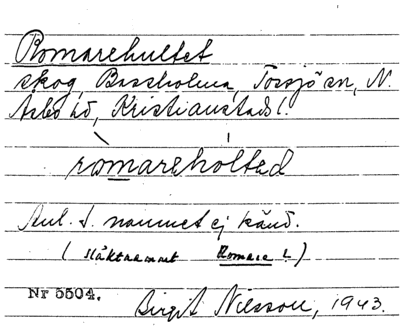 Romarehultet
skog, Baseholma, Torsjö sn, N.
Åsbo hd, Kristianstads l.
romarehòlted
Anl. t. namnet ej känd.
(släktnamnet Romare?)
Nr 5504.
Birgit Nilsson, 1943.